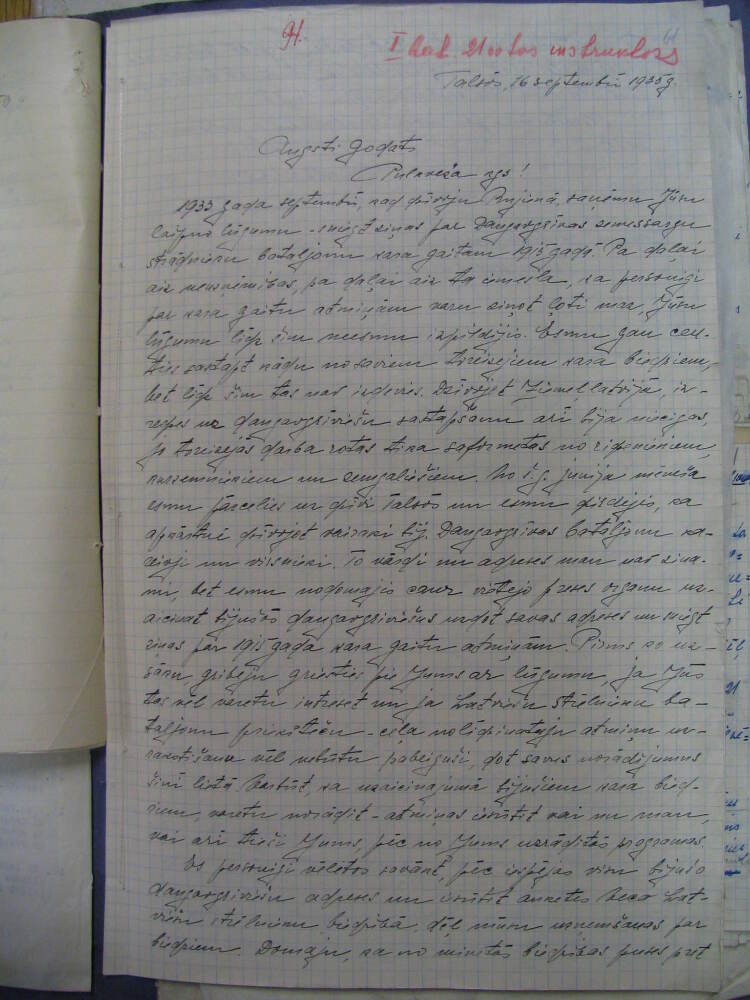 91.
61
I
Talsos, 16 septembrī 1935 g.
Augsti godāts
Pulkveža kgs!
1933 gada septembrī, kad dzīvoju Rujienā, saņēmu Jūsu
laipno lūgumu - sniegt ziņas par Daugavgrīvas zemessargu
strādnieku bataljonu kara gaitām 1915 gadā. Pa daļai
aiz neuzņēmības, pa daļai aiz tā iemesla, ka personīgi
par kara gaitu atmiņām varu ziņot ļoti maz, Jūsu
lūgumu līdz šim neesmu izpildījis. Esmu gan cen-
ties sastapt kādu no saviem toreizejiem kara biedriem,
bet līdz šim tas nav izdevies. Dzīvojot Ziemeļlatvijā, iz-
redzes uz daugavgrīviešu sastapšanu arī bija niecīgas,
jo toreizejās darba rotas tika saformētas no rīdziniekiem,
kurzemniekiem un zemgaliešiem. No š.g. jūnija mēneša
esmu pārcelies uz dzīvi Talsos un esmu dzirdejis, ka
apkārtnē dzīvojot vairāki bij. Daugavgrīvas bataljonu ka-
reivji un virsnieki. To vārdi un adreses man nav zinā-
mi, bet esmu nodomājis caur vietejo preses orgānu uz-
aicināt bijušos daugavgrīviešus uzdot savas adreses un sniegt
ziņas par 1915 gada kara gaitu atmiņām. Pirms ko uz-
sāku, gribeju griesties pie Jums ar lūgumu, ja Jūs
tas vēl varetu intreset un ja Latviešu strēlnieku ba-
taljonu priekšteču - cēla nolīdzinatāju atmiņu uz-
rakstīšanu vēl nebūtu pabeiguši, dot savus norādijumus
šinī lietā. Varbūt, ka uzaicinajumā bijušiem kara bied-
riem, varetu norādīt - atmiņas iesūtīt vai nu man,
vai arī tieši Jums, pēc no Jums uzrādītas programas.
Es personīgi vēletos savākt, pēc iespējas visu bijušo
daugavgrīviešu adreses un iesūtīt anketes veca Lat-
viešu strēlnieku biedrībā, dēļ mūsu uzņemšanas par
biedriem. Domāju, ka no minētās biedrības puses pret